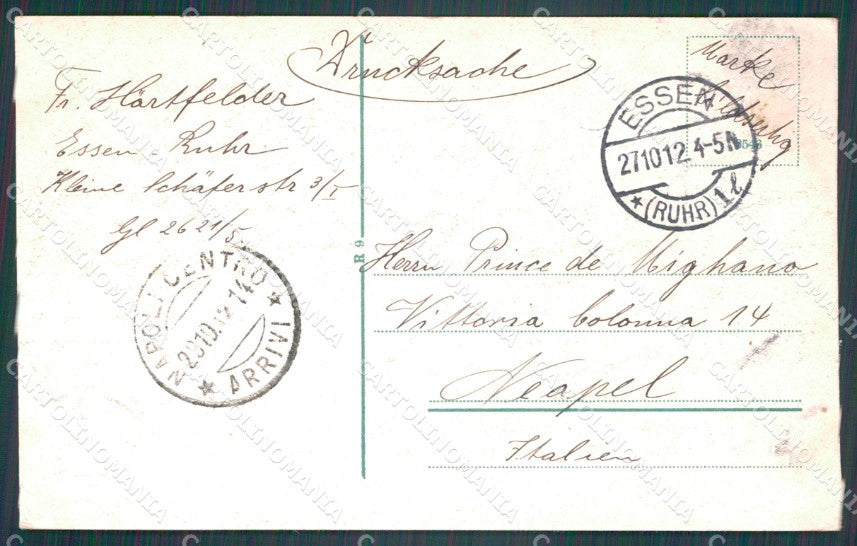 Drucksache
Fr. Härtfelder
Essen-Ruhr
Kleine Schäferstr 3/I
Gl 2621/5
Marke
9543
ESSEN
27.10.12. 4-5N
★ (RUHR) 1 l
R 9
NAPOLI CENTRO
29.10.12 14
★ ARRIVI ★
Herrn Prince de Mighano
Vittoria Colonna 14
Neapel
Italien
CARTOLINOMANIA